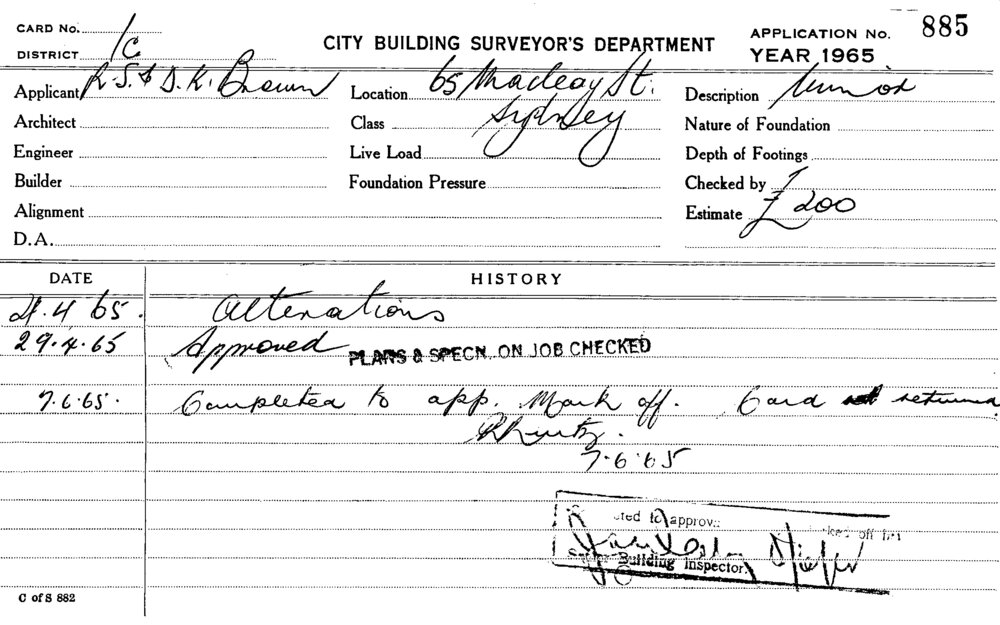 CARD No.
DISTRICT 1C
CITY BUILDING SURVEYOR'S DEPARTMENT
APPLICATION No. 885
YEAR 1965
Applicant R.S. & D.K. Brown
Location 65 Macleay St.
Sydney
Description Minor
Architect
Class
Nature of Foundation
Engineer
Live Load
Depth of Footings
Builder
Foundation Pressure
Checked by
Alignment
Estimate £200
D.A.
DATE HISTORY
21.4 65. Alterations
29.4.65 Approved PLANS & SPECN. ON JOB CHECKED
7.6.65. Completed to app. Mark off. Card returned
7.6.65
to approv
off
Building Inspector.
C of S 882